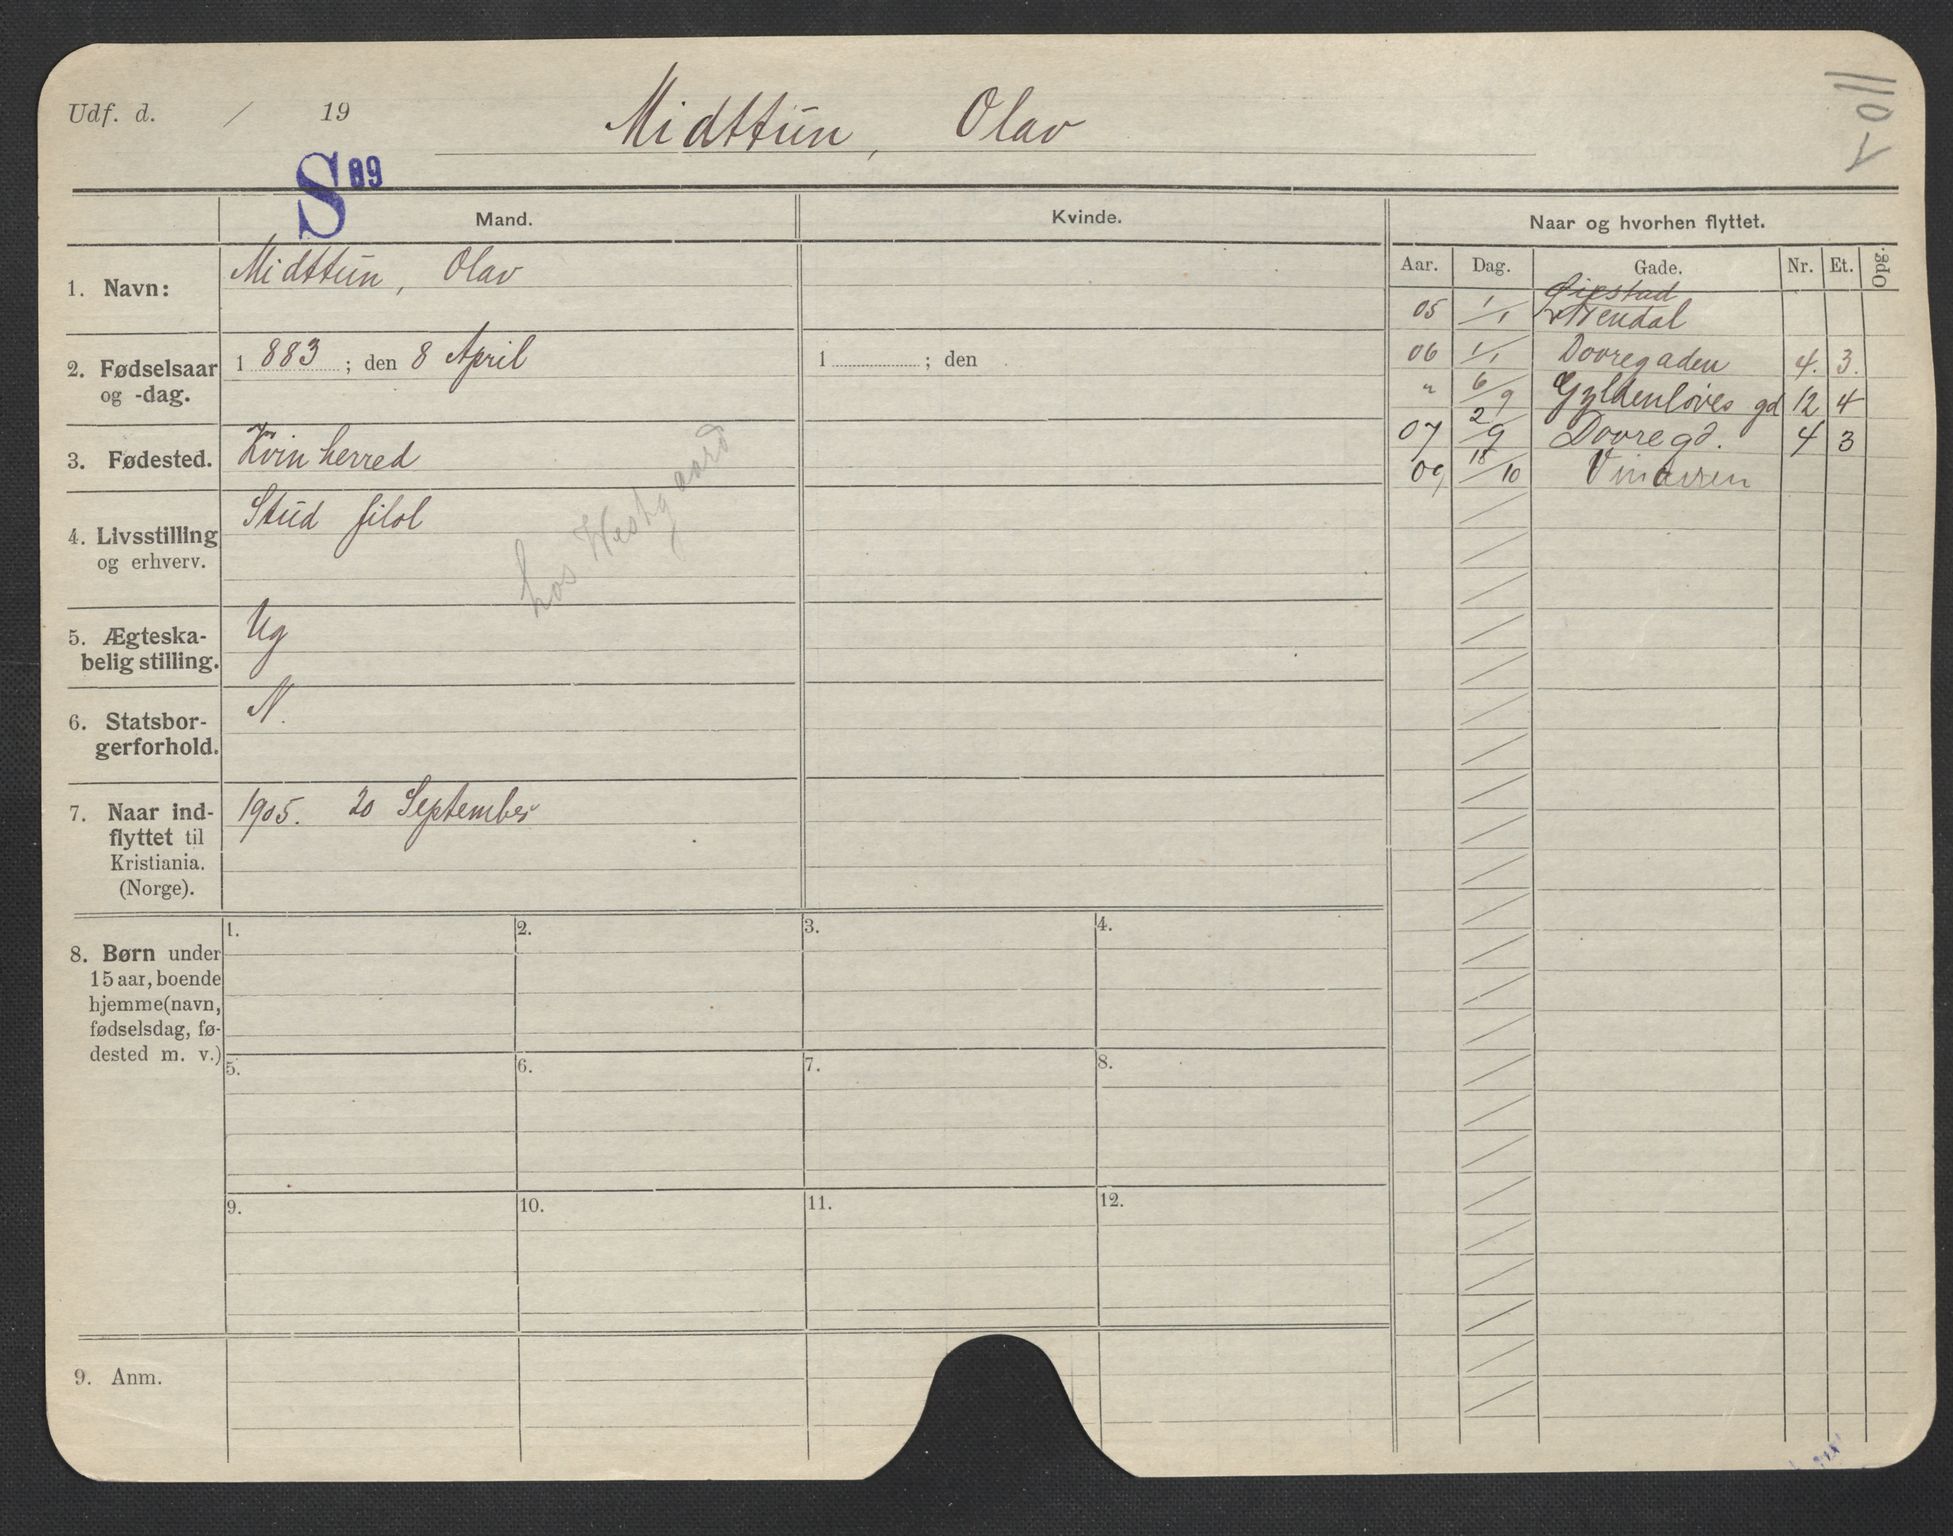 Udf. d. / 19
Midttun, Olav
S 09
Mand.
Kvinde.
Naar og hvorhen flyttet.
Aar. Dag. Gade. Nr. Et. Opg.
1. Navn:
Midttun, Olav
2. Fødselsaar
og -dag.
1883; den 8 April
1 ; den
3. Fødested.
Kvinherred
4. Livsstilling
og erhverv.
Stud filol
hos Westgaard
5. Ægteska-
belig stilling.
Ug
6. Statsbor-
gerforhold.
N.
7. Naar ind-
flyttet til
Kristiania.
(Norge).
1905. 20 September
05 1/1
06 1/1 Dovregaden 4. 3.
" 6/9 Gyldenløves gd 12 4
07 2/9 Dovregd. 4 3
09 18/10
8. Børn under
15 aar, boende
hjemme (navn,
fødselsdag, fø-
dested m. v.)
1. 2. 3. 4.
5. 6. 7. 8.
9. 10. 11. 12.
9. Anm.